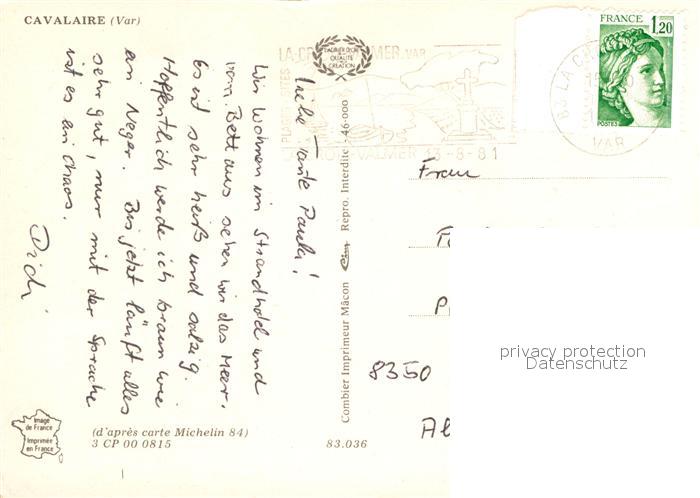 CAVALAIRE (Var)
LA CROIX-VALMER VAR
L'AGNEAU D'OR
QUALITÉ
CRÉATION
PLAGES
LA CROIX-VALMER 13-8-81
FRANCE 1,20
POSTES
83 LA C
VAR
Liebe Tante Paula!
Wir wohnen im Strandhotel und
vom Bett aus sehen wir das Meer.
Es ist sehr heiß und salzig.
Hoffentlich werde ich braun wie
ein Neger. Bis jetzt läuft alles
sehr gut, nur mit der Sprache
ist es ein Chaos.
Didi
Combier Imprimeur Mâcon Cim Repro. Interdite - 46-000
Frau
8350
privacy protection
Datenschutz
Image
de France
Imprimée
en France
(d'après carte Michelin 84)
3 CP 00 0815
83.036